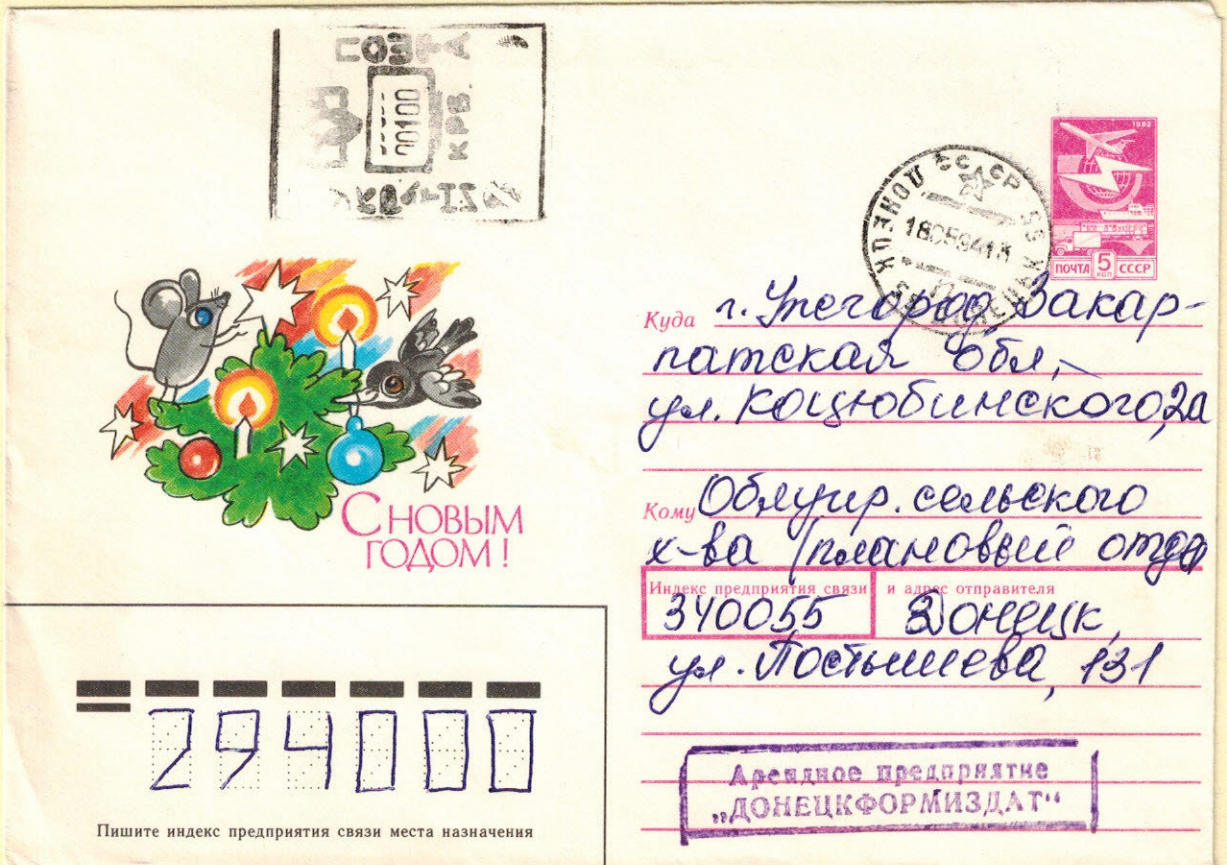 ПОШТА
00100
КРБ.
1982
ПОЧТА 5 КОП СССР
ДОНЕЦК СССР
18059413
С НОВЫМ
ГОДОМ!
Куда г. Ужгород, Закар-
патская обл,-
ул. Коцюбинского, 2а
Кому Облупр. сельского
х-ва (плановый отдел
Индекс предприятия связи и адрес отправителя
340055 Донецк,
ул. Постышева, 131
Арендное предприятие
„ДОНЕЦКФОРМИЗДАТ“
294000
Пишите индекс предприятия связи места назначения